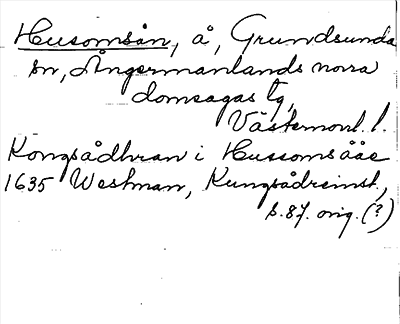 Husomsån, å, Grundsunda
sn, Ångermanlands norra
domsagas tg,
Västernorrl. l.
Kongsådhran i Hussomsååe
1635 Westman, Kungsådreinst.,
s. 87. orig. (?)